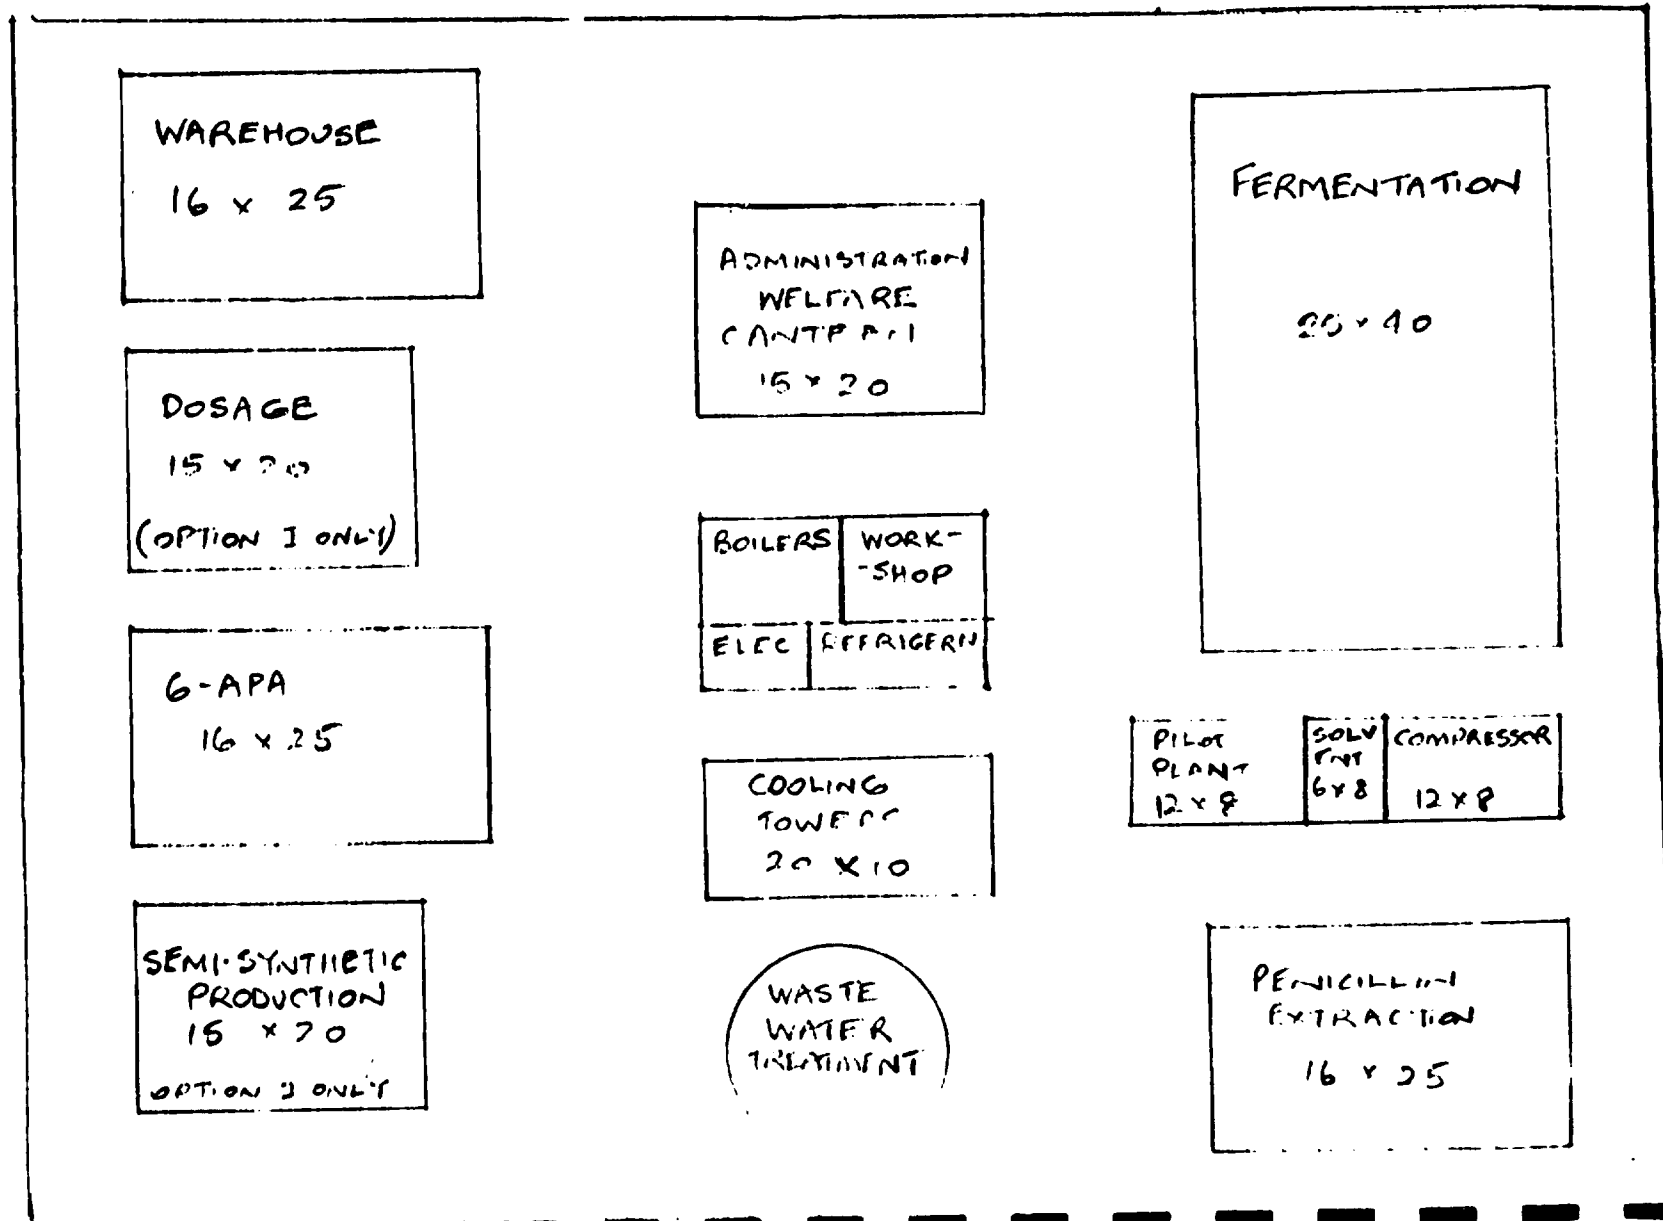 WAREHOUSE
16 x 25
DOSAGE
15 x 20
(OPTION I ONLY)
6-APA
16 x 25
SEMI-SYNTHETIC
PRODUCTION
15 x 20
OPTION I ONLY
ADMINISTRATION
WELFARE
CANTEEN
15 x 20
BOILERS
WORK-
-SHOP
ELEC
REFRIGERN
COOLING
TOWERS
20 x 10
WASTE
WATER
TREATMENT
FERMENTATION
25 x 40
PILOT
PLANT
12 x 8
SOLV
ENT
6 x 8
COMPRESSOR
12 x 8
PENICILLIN
EXTRACTION
16 x 25